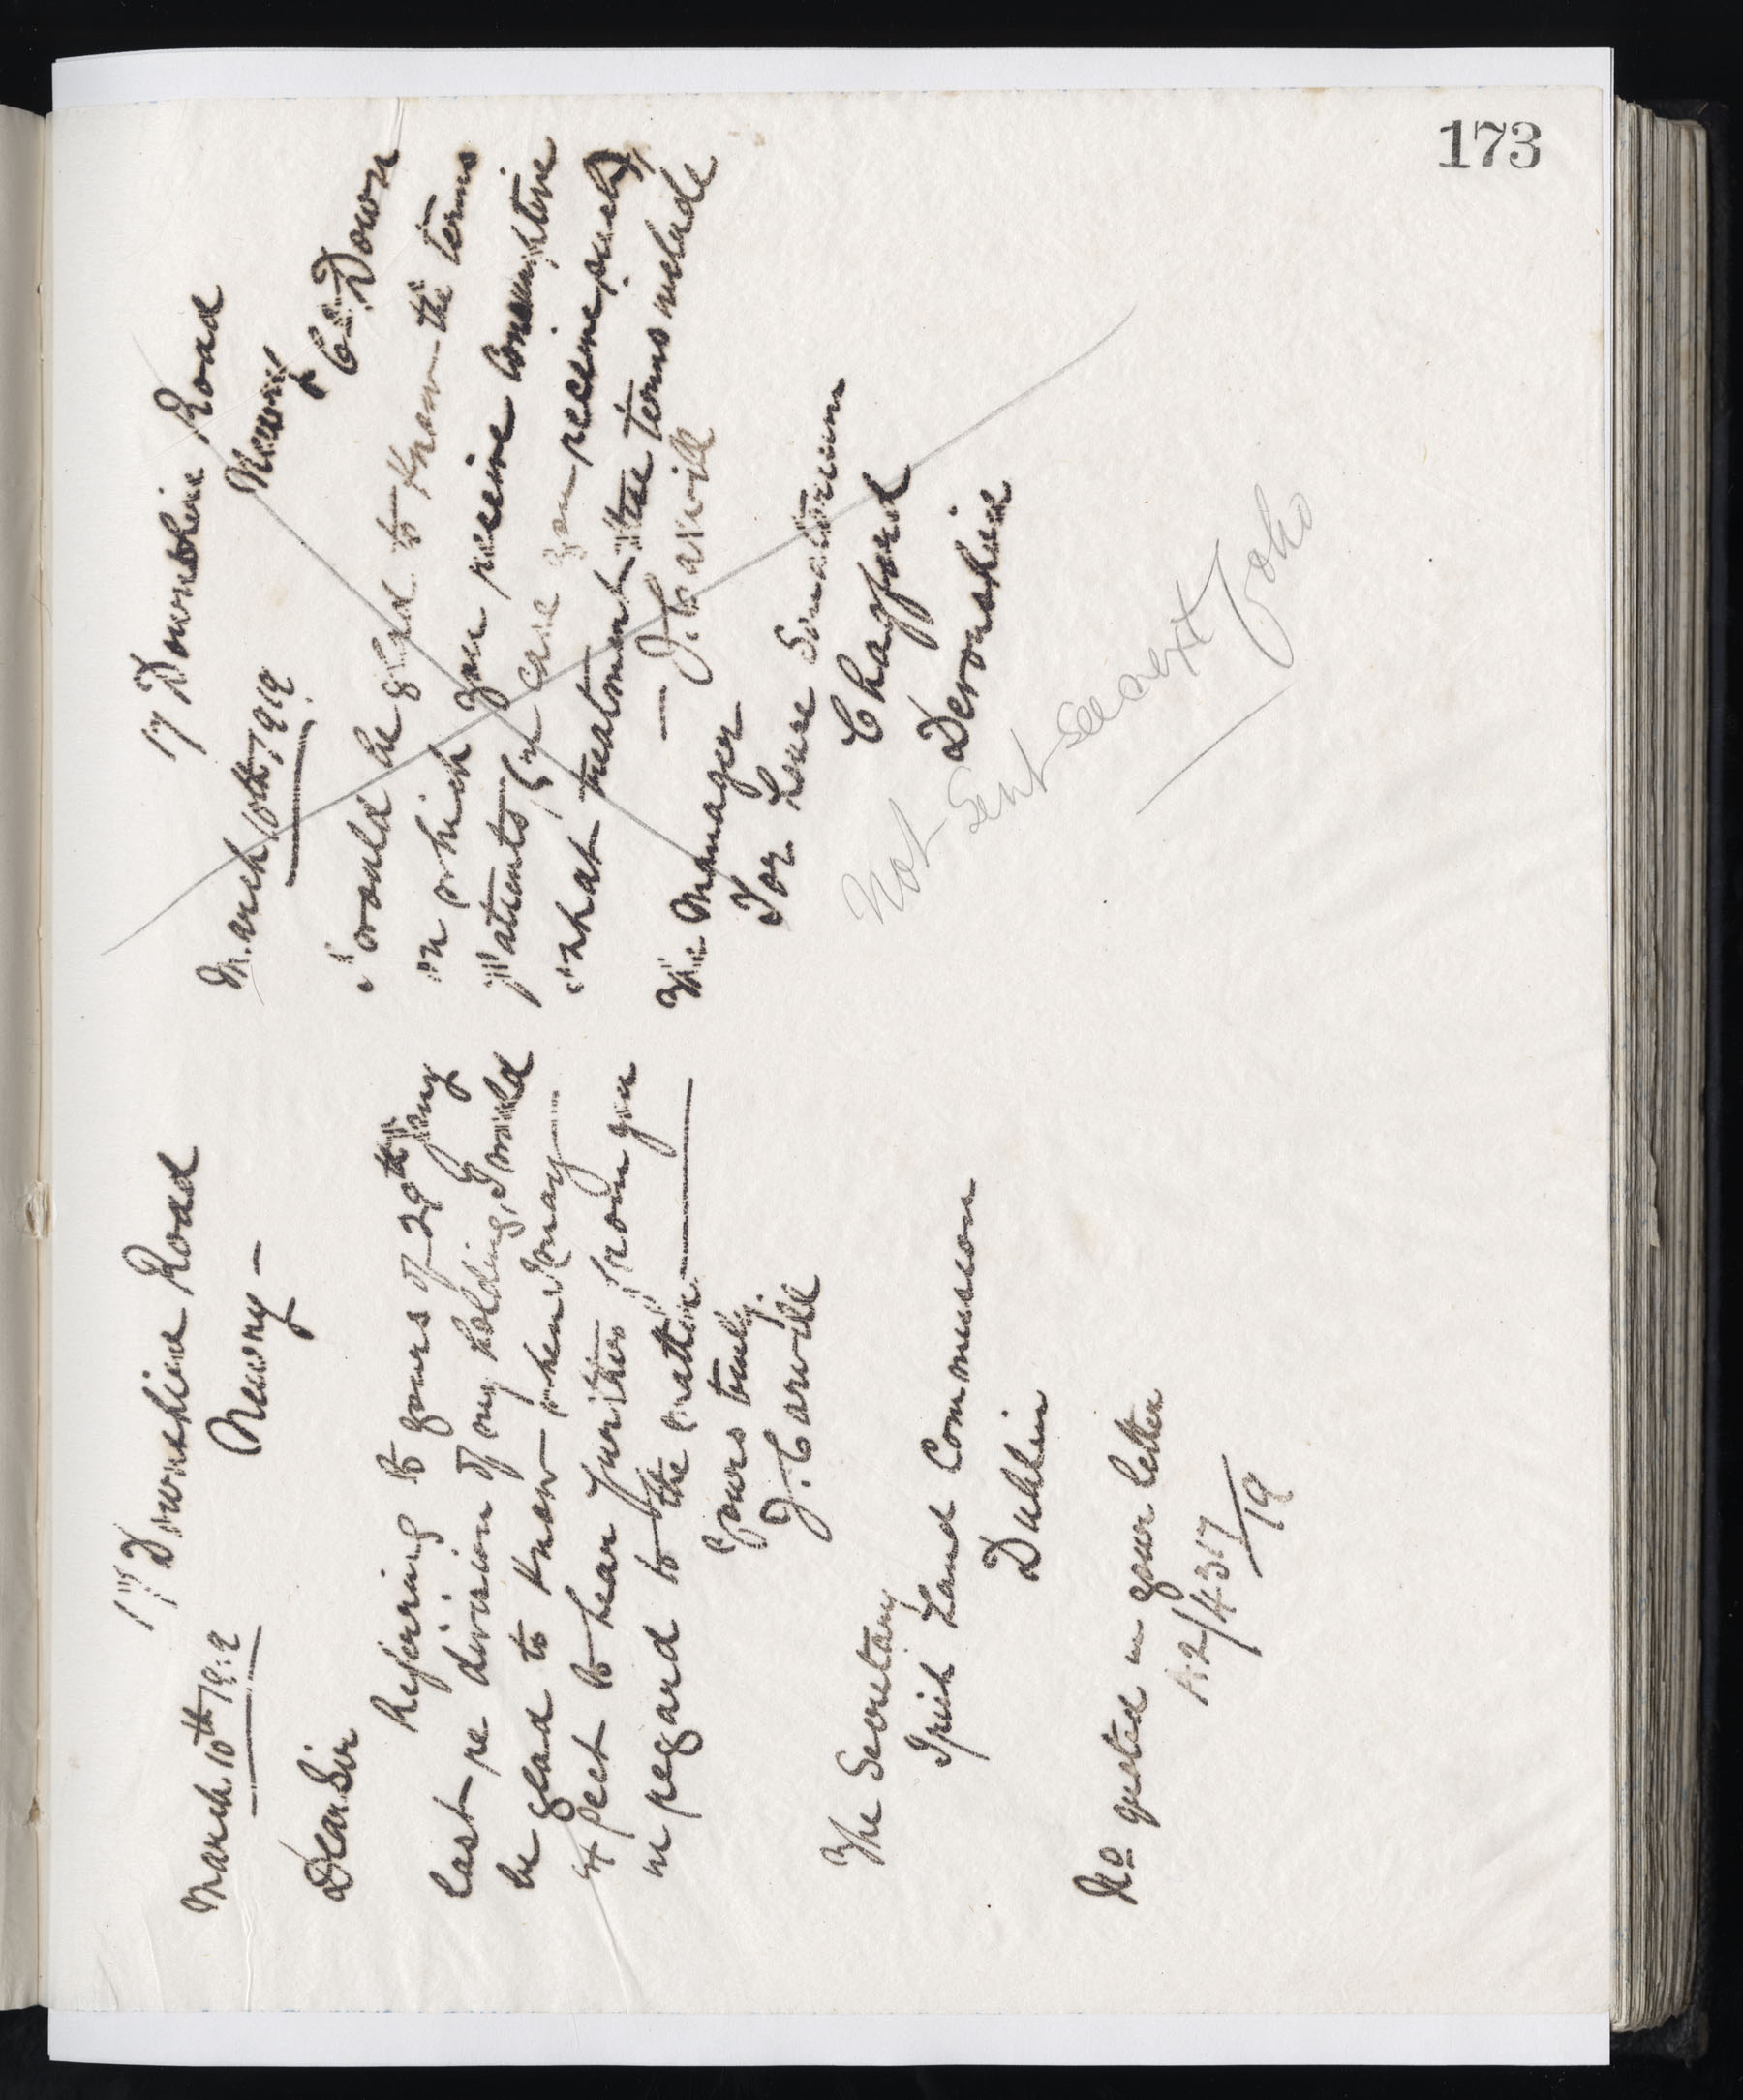 173
17 Downshire Road
Newry –
March 10th 1919
Dear Sir
Referring to yours of 29th Jany
last re division of my holding, I would
be glad to know when I may
expect to hear further from you
in regard to the matter.
Yours truly.
J. Carvill
The Secretary
Irish Land Commission
Dublin
No quoted in your letter
4317/19
17 Downshire Road
Newry
Co. Down
March 10th 1919.
I would be glad to know the terms
on which you receive Consumptive
patients (in case you receive such)
what treatment the terms include
– J. Carvill
The Manager
Tor House Sanatorium
Chagford
Devonshire
Not sent see next folio